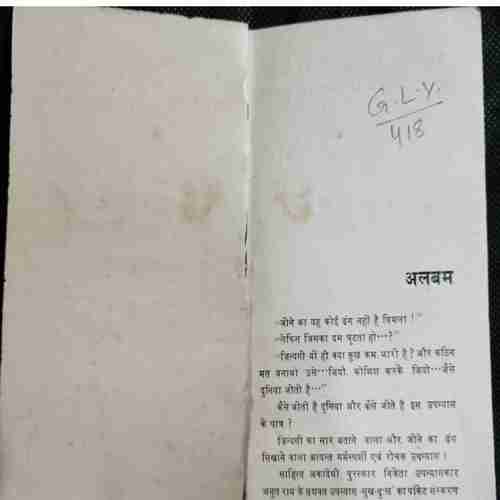 G.L.Y.
418
अलबम
"जीने का यह कोई ढंग नहीं है विमला !"
"लेकिन जिसका दम घुटता हो...?"
"ज़िन्दगी यों ही क्या कुछ कम भारी है ? और कठिन
मत बनाओ उसे...जियो, कोशिश करके जियो...जैसे
दुनिया जीती है..."
कैसे जीती है दुनिया और कैसे जीते है इस उपन्यास
के पात्र ?
ज़िन्दगी का सार बताने वाला और जीने का ढंग
सिखाने वाला अत्यन्त मर्मस्पर्शी एवं रोचक उपन्यास !
साहित्य अकादेमी पुरस्कार विजेता उपन्यासकार
अमृत राय के सशक्त उपन्यास 'सुख-दुःख' का पॉकेट संस्करण